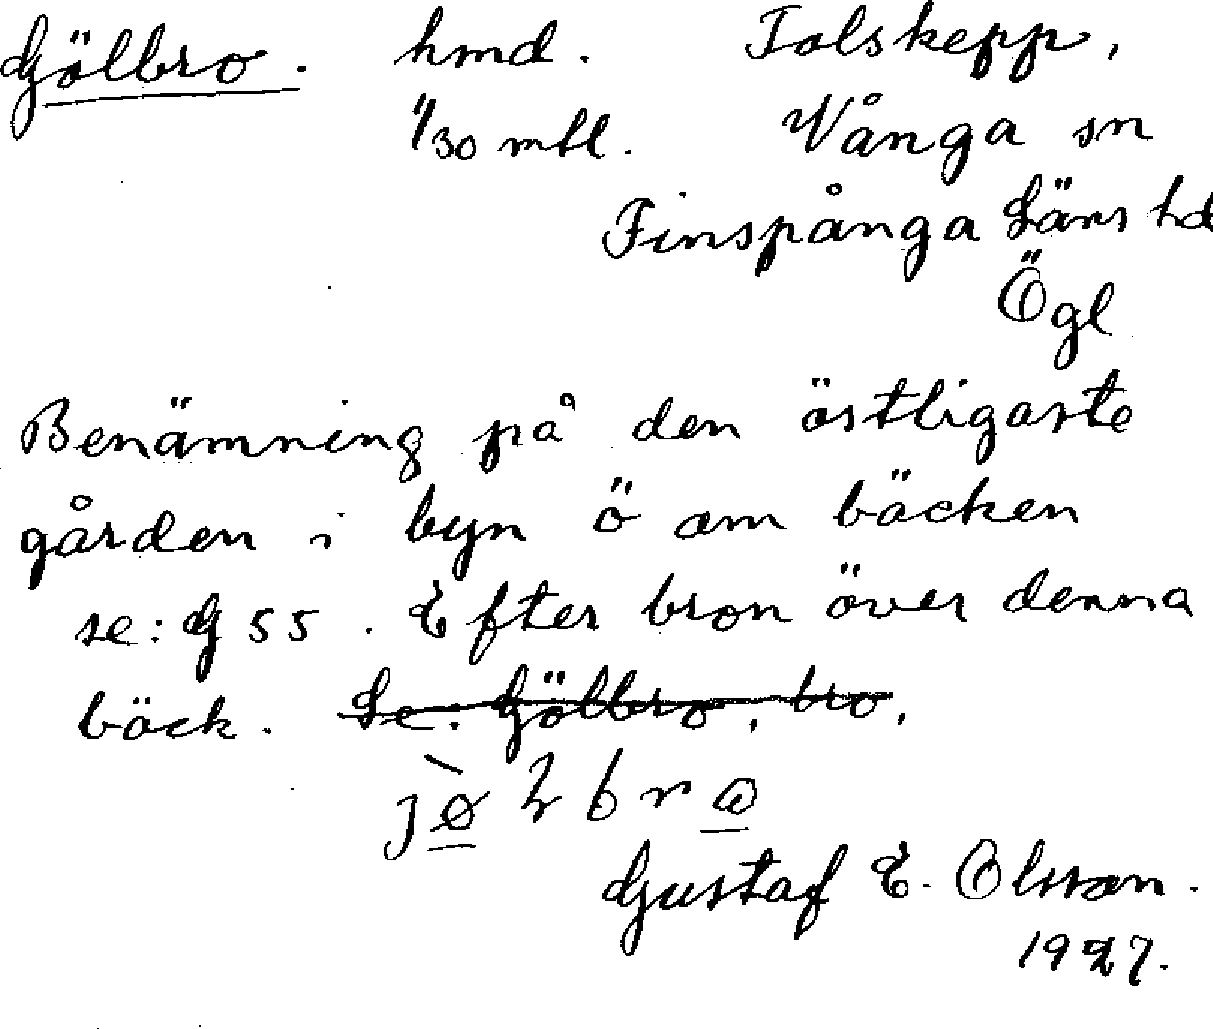 Gölbro. hmd. Tolskepp,
1/30 mtl. Vånga sn
Finspånga Läns hd
Ögl
Benämning på den östligaste
gården i byn ö om bäcken
se: G 55. Efter bron över denna
bäck. Se: Gölbro, bro,
Gustaf E. Olsson.
1927.